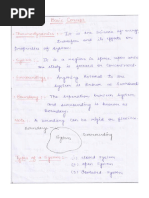 Basic Concepts
Thermodynamics :- It is the science of energy
transfer and its effects on
properties of system.
System :- It is a region in space upon which
the study is focused or concentrated
Surrounding :- Anything external to the
system is known as surrounding.
Boundary :- The separation between system
and surrounding is known as
boundary.
Note :- A boundary can be rigid or flexible
boundary
Surrounding
System
Types of a System :-
(1) Closed System
(2) Open System
(3) Isolated System